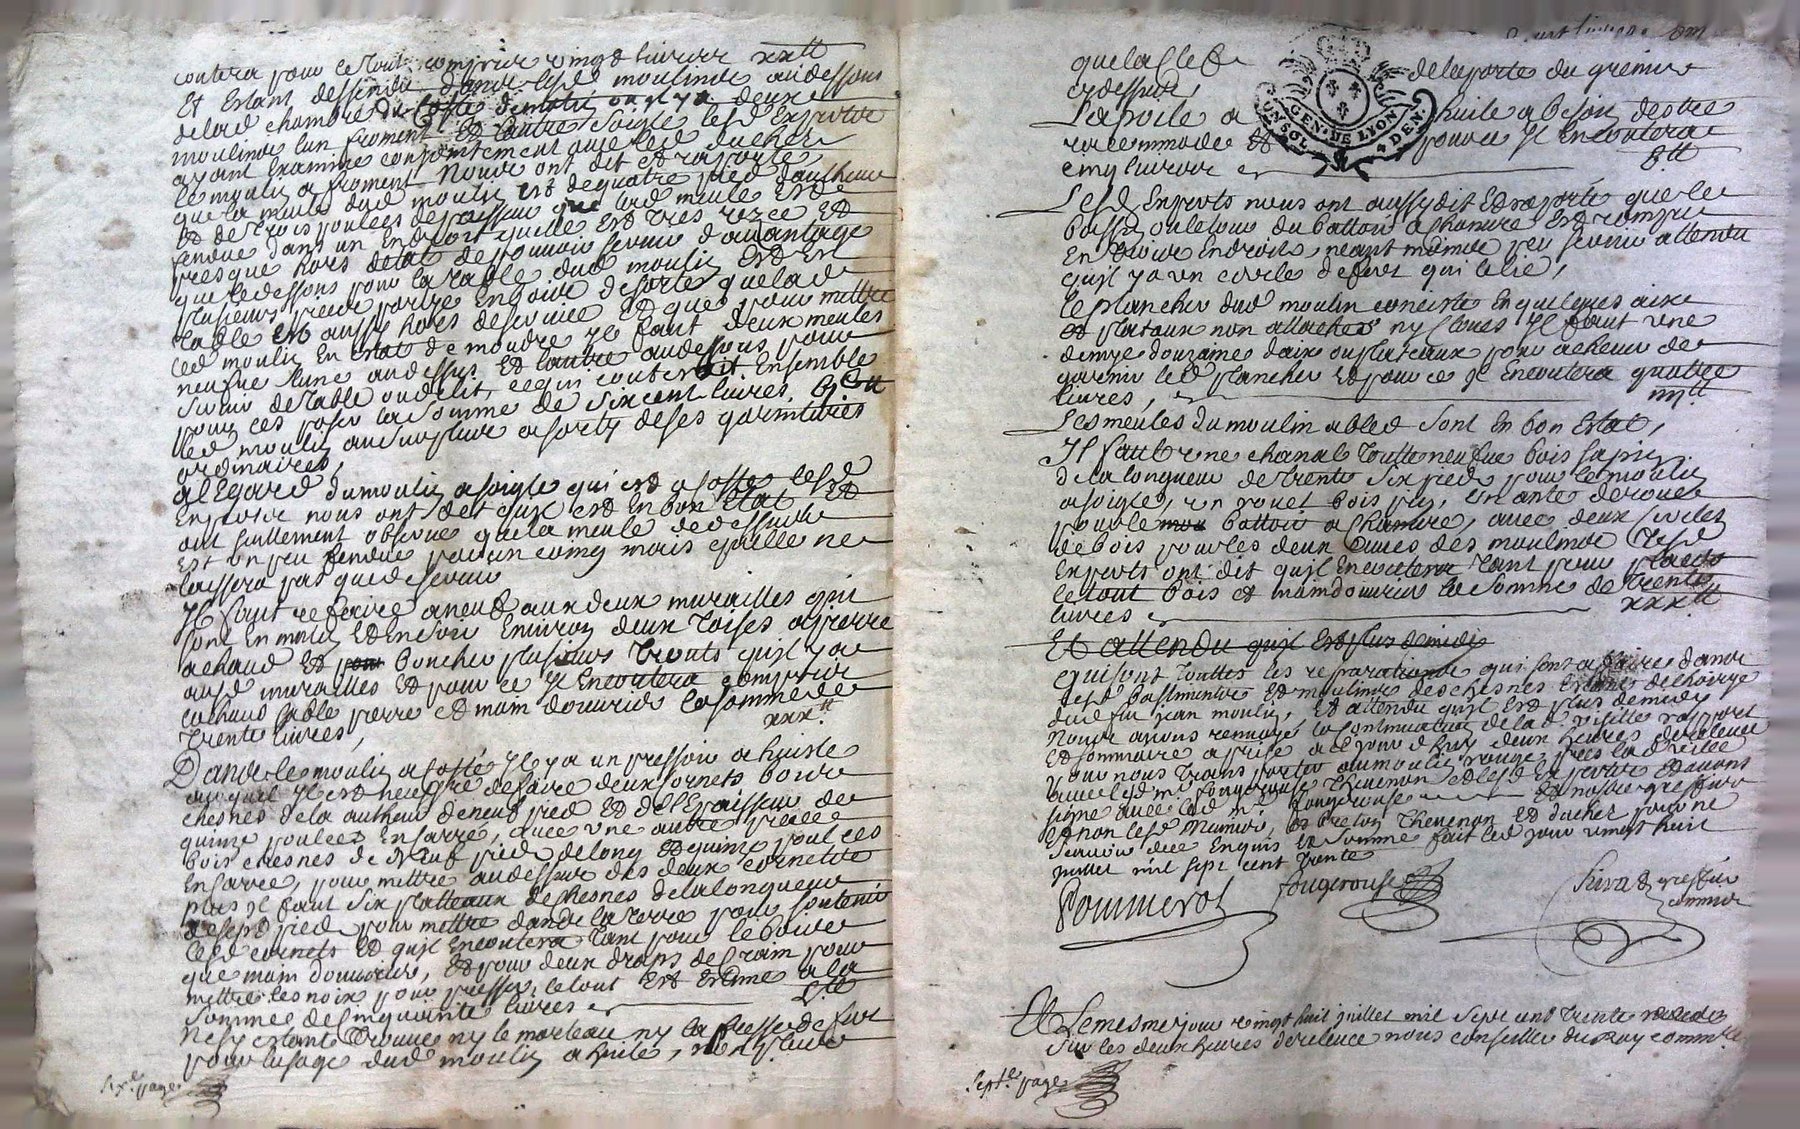 coutera pour le tout compris vingt livres xx tt
Et Estant dessendu dans lesd moulins au dessous
delad chambre du costé de matin ou il y a deux
moulins lun froment et lautre soigle lesd Experts
ayant Examiné conjointement avec led ducher
le moulin a froment Nous ont dit et raporté
que la meule dud moulin est de quatre pied dautheur
et de trois poulces depaisseur que lad meule est
fendue dans un Endroit quelle est tres rezée et
presque hors detat de pouvoir servir davantage
que le dessous pour la table dud moulin est en
plusieurs piece partye En boise desorte que lad
table est aussy hors de service et que pour mettre
led moulin En Estat de moudre il faut deux meules
neufve lune au dessus et lautre au dessous pour
servir de table ou de lit, ce qui couteroit Ensemble
pour les poser la somme de six cent livres, vi C tt
led moulin au surplus assorty de ses garnitures
ordinaires,
a legard du moulin a soigle qui est a costé lesd
Experts nous ont dit quil est En bon Etat et
ont seullement observé que la meule de dessus
est un peu fendue par un coing mais quelle ne
laissera pas que de servir
Il faut refaire a neuf aux deux murailles qui
sont En matin et En soir Environ deux toises a pierre
a chaud et boucher plusieurs trouts quil y a
auxd murailles et pour ce il En coutera compris
la chaud sable pierre et main douvriers la somme de
trente livres, xxx tt
Dans le moulin a costé il y a un pressoir a huisle
auquel il est necessre de faire deux cornets boire
chesnes de la autheur de neuf pied et de lEpaisseur de
quinze poulces En carré, avec une autre piece
bois chesnes de neuf pied de long et quinze poulces
En carré, pour mettre au dessus des deux cornets
plus il faut six platteaux de chesnes de la longueur
de sept pied pour mettre dans la terre pour soutenir
lesd cornets et quil En coutera tant pour le boire
que main douvriers, et pour deux draps de crain pour
mettre les noix pour presser, le tout est estimé a la
somme de cinquante livres L tt
Ne sy estant trouvé ny le marteau ny la presse de fer
pour lusage dud moulin a huile, non plus
six.e page
que la clef de la porte du grenier
cy dessus,
GEN. DE LYON
La poile a huile a besoin destre
racommodée et pour ce il En coutera
cinq livres 5 tt
Lesd Experts nous ont aussy dit et raporté que le
bassin ou le tour du battoir a chanvre est rompu
En divers Endroits, neantmoins peu servir attendu
quil y a un cercle de fert qui le lie,
le plancher dud moulin conciste En quelques aix
et plataux non attachés ny cloués il faut une
demye douzaine daix ou plateaux pour achever de
garnir led plancher et pour ce il En coutera quatre
livres, iiii tt
Les meules du moulin a bled sont En bon Estat,
Il faut une chanal toutte neufve bois sapin
de la longueur de trente six pied pour le moulin
a soigle, un rouet bois pin, un ante de roue
pour le battoir a chanvre, avec deux cercles
de bois pour les deux cuves des moulins lesd
Experts ont dit quil En coutera tant pour
le tout bois et main douvriers la somme de trente
livres xxx tt
Et attendu quil est plus de midy
qui sont touttes les reparations qui sont a faire dans
lesd bastiments et moulins des chesnes Estant de lhoirye
dud feu jean moulin, et attendu quil est plus de midy
Nous avons renvoyé la continuation de lad visitte raport
et sommaire a prise a ce jourdhuy deux heures de relevée
pour nous transporter au moulin rouge pres lad ville
avec lesd m.s fougerouse Thevenon et lesd Experts et avons
signé avec led m.e fougerouse et nostre greffier
et non lesd Mamiés, et breton Thevenon et ducher pour ne
scavoir de ce Enquis et sommé fait led jour vingt huit
juillet mil sept cent trente
Pommerol fougerouse greffier
commis
Et Lemesme jour vingt huit juillet mil sept cent trente
sur les deux heures de relevée nous conseiller du Roy comm.re
sept.e page